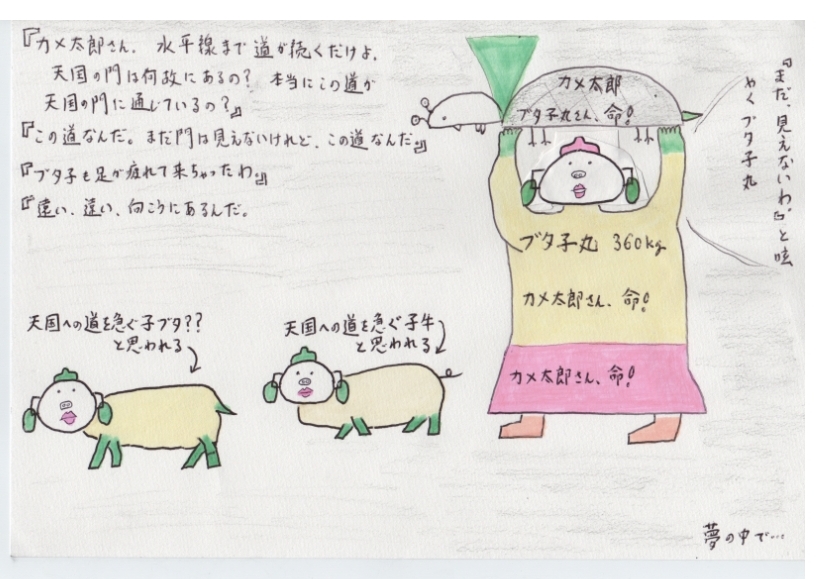 『カメ太郎さん、水平線まで道が続くだけよ、
天国の門は何故にあるの？ 本当にこの道が
天国の門に通じているの？』
『この道なんだ。まだ門は見えないけれど、この道なんだ』
『ブタ子も足が疲れて来ちゃったわ。』
『遠い、遠い、向こうにあるんだ。
カメ太郎
ブタ子丸さん、命！
『まだ、見えないわ』と呟
やくブタ子丸
ブタ子丸 360kg
カメ太郎さん、命！
カメ太郎さん、命！
天国への道を急ぐ子ブタ？？
と思われる
天国への道を急ぐ子牛
と思われる
夢の中で…